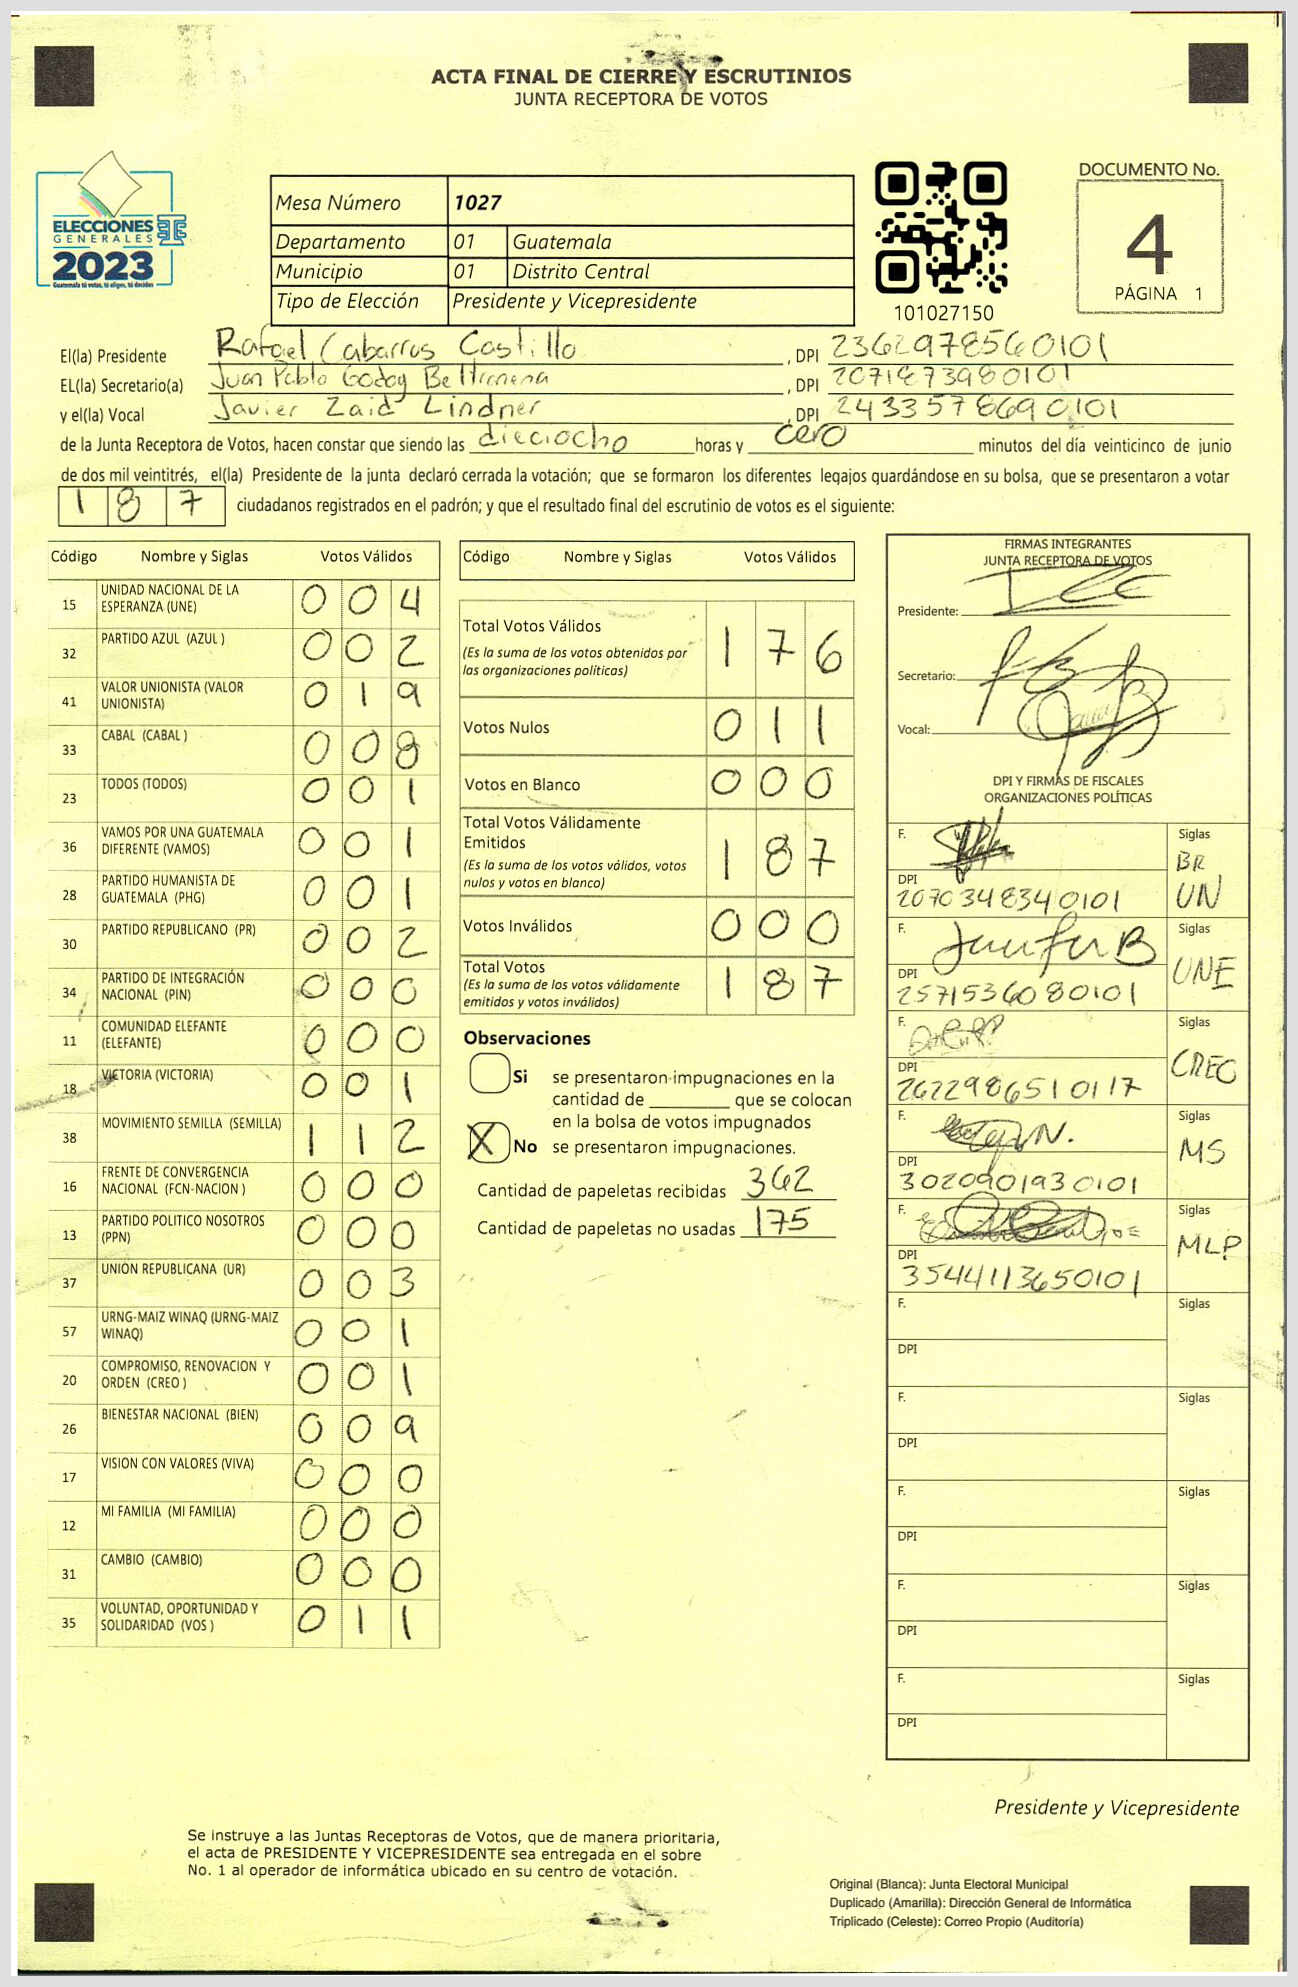 ACTA FINAL DE CIERRE Y ESCRUTINIOS
JUNTA RECEPTORA DE VOTOS
ELECCIONES
GENERALES
2023
Guatemala tú votas, tú eliges, tú decides
Mesa Número 1027
Departamento 01 Guatemala
Municipio 01 Distrito Central
Tipo de Elección Presidente y Vicepresidente
101027150
DOCUMENTO No.
4
PÁGINA 1
El(la) Presidente Rafael Cabarrus Castillo, DPI 2362978560101
EL(la) Secretario(a) Juan Pablo Godoy Beltranena, DPI 2071873980101
y el(la) Vocal Javier Zaid Lindner, DPI 2433578690101
de la Junta Receptora de Votos, hacen constar que siendo las dieciocho horas y cero minutos del día veinticinco de junio
de dos mil veintitrés, el(la) Presidente de la junta declaró cerrada la votación; que se formaron los diferentes legajos guardándose en su bolsa, que se presentaron a votar
1 8 7 ciudadanos registrados en el padrón; y que el resultado final del escrutinio de votos es el siguiente:
Código Nombre y Siglas Votos Válidos
15 UNIDAD NACIONAL DE LA ESPERANZA (UNE) 0 0 4
32 PARTIDO AZUL (AZUL ) 0 0 2
41 VALOR UNIONISTA (VALOR UNIONISTA) 0 1 9
33 CABAL (CABAL ) 0 0 8
23 TODOS (TODOS) 0 0 1
36 VAMOS POR UNA GUATEMALA DIFERENTE (VAMOS) 0 0 1
28 PARTIDO HUMANISTA DE GUATEMALA (PHG) 0 0 1
30 PARTIDO REPUBLICANO (PR) 0 0 2
34 PARTIDO DE INTEGRACIÓN NACIONAL (PIN) 0 0 0
11 COMUNIDAD ELEFANTE (ELEFANTE) 0 0 0
18 VICTORIA (VICTORIA) 0 0 1
38 MOVIMIENTO SEMILLA (SEMILLA) 1 1 2
16 FRENTE DE CONVERGENCIA NACIONAL (FCN-NACION ) 0 0 0
13 PARTIDO POLITICO NOSOTROS (PPN) 0 0 0
37 UNIÓN REPUBLICANA (UR) 0 0 3
57 URNG-MAIZ WINAQ (URNG-MAIZ WINAQ) 0 0 1
20 COMPROMISO, RENOVACION Y ORDEN (CREO ) 0 0 1
26 BIENESTAR NACIONAL (BIEN) 0 0 9
17 VISION CON VALORES (VIVA) 0 0 0
12 MI FAMILIA (MI FAMILIA) 0 0 0
31 CAMBIO (CAMBIO) 0 0 0
35 VOLUNTAD, OPORTUNIDAD Y SOLIDARIDAD (VOS ) 0 1 1
Código Nombre y Siglas Votos Válidos
Total Votos Válidos 1 7 6
(Es la suma de los votos obtenidos por
las organizaciones políticas)
Votos Nulos 0 1 1
Votos en Blanco 0 0 0
Total Votos Válidamente
Emitidos 1 8 7
(Es la suma de los votos válidos, votos
nulos y votos en blanco)
Votos Inválidos 0 0 0
Total Votos 1 8 7
(Es la suma de los votos válidamente
emitidos y votos inválidos)
Observaciones
Si se presentaron impugnaciones en la
cantidad de ________ que se colocan
en la bolsa de votos impugnados
X No se presentaron impugnaciones.
Cantidad de papeletas recibidas 362
Cantidad de papeletas no usadas 175
FIRMAS INTEGRANTES
JUNTA RECEPTORA DE VOTOS
Presidente:
Secretario:
Vocal:
DPI Y FIRMAS DE FISCALES
ORGANIZACIONES POLÍTICAS
F. Siglas
BR
DPI UN
2070348340101
F. Siglas
DPI UNE
2571536080101
F. Siglas
DPI CREO
2622986510117
F. Siglas
DPI MS
3020901930101
F. Siglas
DPI MLP
3544113650101
F. Siglas
DPI
F. Siglas
DPI
F. Siglas
DPI
F. Siglas
DPI
F. Siglas
DPI
Presidente y Vicepresidente
Se instruye a las Juntas Receptoras de Votos, que de manera prioritaria,
el acta de PRESIDENTE Y VICEPRESIDENTE sea entregada en el sobre
No. 1 al operador de informática ubicado en su centro de votación.
Original (Blanca): Junta Electoral Municipal
Duplicado (Amarilla): Dirección General de Informática
Triplicado (Celeste): Correo Propio (Auditoría)